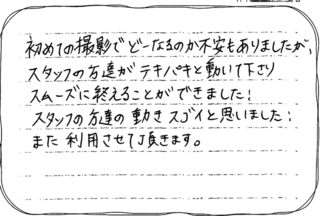 初めての撮影でどーなるのか不安もありましたが、
スタッフの方達がテキパキと動いて下さり
スムーズに終えることができました!
スタッフの方達の動きスゴイと思いました!
また利用させて頂きます。